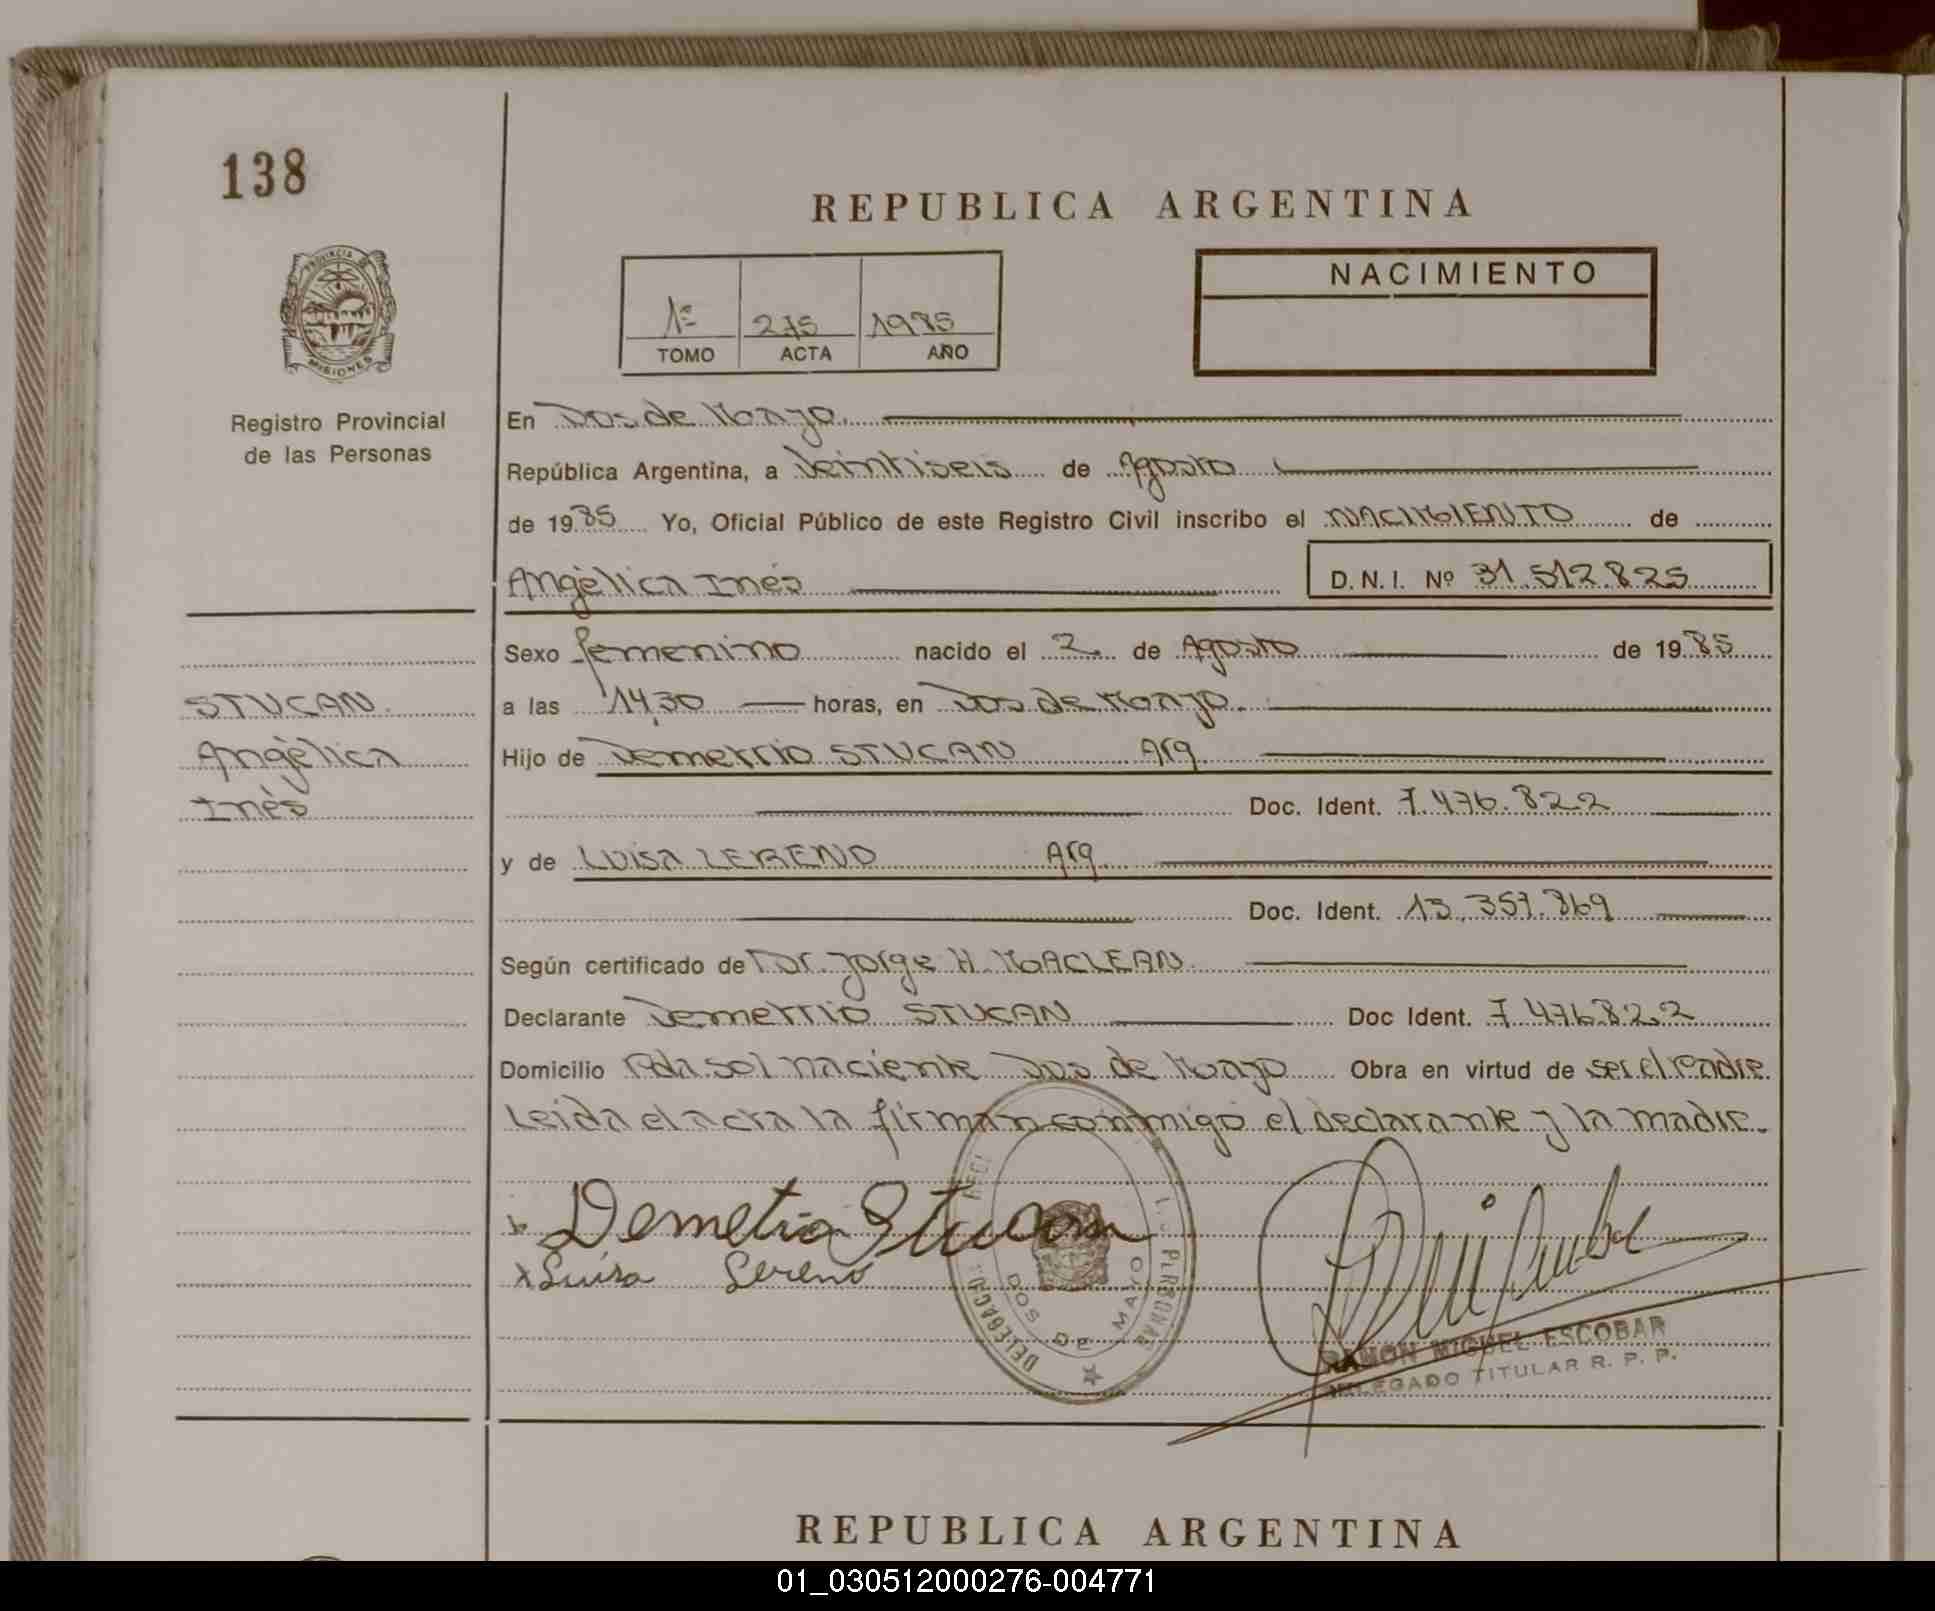 138
REPUBLICA ARGENTINA
PROVINCIA DE MISIONES
NACIMIENTO
1º 275 1985
TOMO ACTA AÑO
Registro Provincial
de las Personas
En Dos de Mayo.
República Argentina, a Veintiseis de Agosto
de 1985 Yo, Oficial Público de este Registro Civil inscribo el NACIMIENTO de
Angélica Inés D.N.I. Nº 31.512.825
Sexo femenino nacido el 2 de Agosto de 1985
STUCAN
Angélica
Inés
a las 14,30 horas, en Dos de Mayo.
Hijo de Demetrio STUCAN Arg
Doc. Ident. 7.476.822
y de Luisa LERENO Arg.
Doc. Ident. 13.357.869
Según certificado de Dr. Jorge H. MACLEAN
Declarante Demetrio STUCAN Doc Ident. 7.476.822
Domicilio Pda sol naciente Dos de Mayo Obra en virtud de ser el Padre.
Leida el acta la firman conmigo el declarante y la madre.
Demetrio Stucan
x Luisa Lereno
DOS DE MAYO
RAMON MIGUEL ESCOBAR
DELEGADO TITULAR R. P. P.
REPUBLICA ARGENTINA
01_030512000276-004771